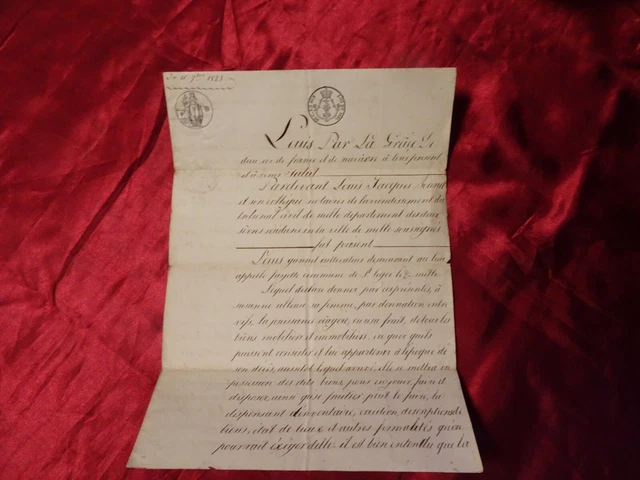 Du 11 7bre 1823
Louis Par La Grâce de
dieu roi de france et de navarre à tous présent
et à venir Salut
Pardevant Louis Jacques
et son collegue notaires de l'arrondissement du
tribunal civil de melle département des deux
sèvres résidans en la ville de melle soussignés
fut présent
Louis cultivateur demeurant au lieu
appellé commune de St leger lès melle
Lequel declare donner par ces présentes, à
suzanne sa femme, par donnation entre
vifs, la jouissance viagère, ou usufruit, de tous les
biens mobiliers et immobiliers, en quoi qu'ils
puissent consister et lui appartenir à l'époque de
son décès, auxquels elle se mettra en
possession des dits biens, pour en jouir, faire et
disposer, ainsi qu'usufruitier peut le faire, la
dispensant d'inventaire, caution, descriptions de
biens, état de lieux et d'autres formalités qu'on
pourrait exiger d'elle. il est bien entendu que la